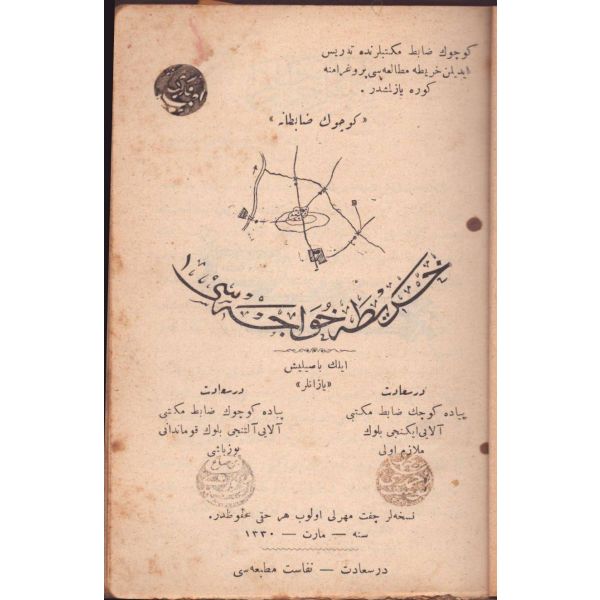 كوچوك ضابط مكتبلرنده تدريس
ايديلن خريطه مطالعه‌سى پروغرامنه
كوره يازلمشدر .
« كوچوك ضابطانه »
خريطه خواجه‌سى ١
ايلك باصيليش
« يازانلر »
درسعادت
پياده كوچك ضابط مكتبى
آلايى ايكنجى بلوك
ملازم اولى
درسعادت
پياده كوچوك ضابط مكتبى
آلايى آلتنجى بلوك قوماندانى
يوزباشى
نسخه‌لر چفت مهرلى اولوب هر حقى محفوظدر.
سنه — مارت — ١٣٣٠
درسعادت — نفاست مطبعه‌سى